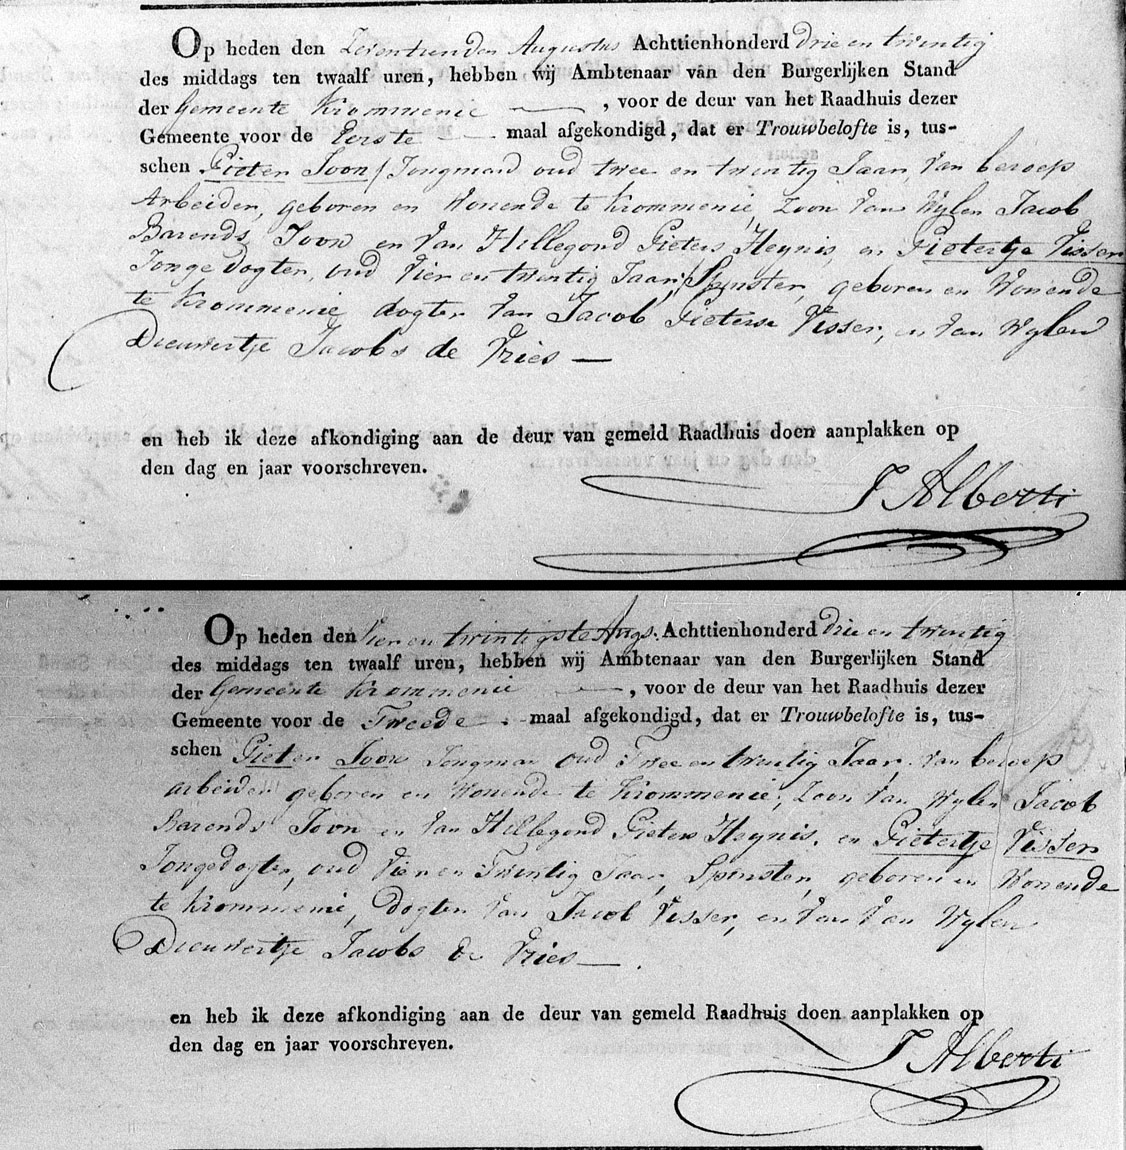 Op heden den Zeventienden Augustus Achttienhonderd drie en twintig
des middags ten twaalf uren, hebben wij Ambtenaar van den Burgerlijken Stand
der Gemeente Krommenie —— , voor de deur van het Raadhuis dezer
Gemeente voor de Eerste — maal afgekondigd, dat er Trouwbelofte is, tus-
schen Pieter Joon / Jongman oud twee en twintig Jaar, van beroep
Arbeider, geboren en Wonende te Krommenie, Zoon van Wylen Jacob
Barends Joon en van Hillegond Pieters Heynis, en Pietertje Visser
Jonge dogter, oud Vier en twintig Jaar, / Spinster, geboren en Wonende
te Krommenie dogter van Jacob Pieterse Visser, en van Wylen
Dieuwertje Jacobs de Vries —
en heb ik deze afkondiging aan de deur van gemeld Raadhuis doen aanplakken op
den dag en jaar voorschreven.
J Alberti
Op heden den Vier en twintigste Augs. Achttienhonderd drie en twintig
des middags ten twaalf uren, hebben wij Ambtenaar van den Burgerlijken Stand
der Gemeente Krommenie —— , voor de deur van het Raadhuis dezer
Gemeente voor de Tweede — maal afgekondigd, dat er Trouwbelofte is, tus-
schen Pieter Joon Jongman oud Twee en twintig Jaar, van beroep
arbeider geboren en Wonende te Krommenie, Zoon van Wylen Jacob
Barends Joon en van Hillegond Pieters Heynis, en Pietertje Visser
Jongedogter, oud Vier en Twintig Jaar, Spinster, geboren en Wonende
te Krommenie, Dogter van Jacob Visser, en van van Wylen
Dieuwertje Jacobs de Vries — .
en heb ik deze afkondiging aan de deur van gemeld Raadhuis doen aanplakken op
den dag en jaar voorschreven.
J Alberti